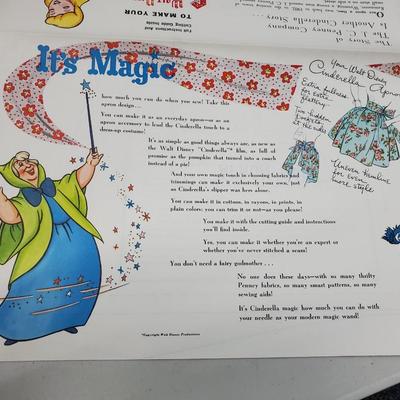 TO MAKE YOUR
Cutting Guide Inside
For Instructions And
The Story of
The J. C. Penney Company
Is Another Cinderella Story . . .
It's Magic
how much you can do when you sew! Take this
apron design . . .
You can make it as an everyday apron—or an
apron accessory to lend the Cinderella touch to a
dress-up costume!
It's as simple as good things always are, as new as
the Walt Disney "Cinderella"™ film, as full of
promise as the pumpkin that turned into a coach
instead of a pie!
And your own magic touch in choosing fabrics and
trimmings can make it exclusively your own, just
as Cinderella's slipper was hers alone.
You can make it in cottons, in rayons, in prints, in
plain colors; you can trim it or not—as you please!
You make it with the cutting guide and instructions
you'll find inside.
Yes, you can make it whether you're an expert or
whether you've never stitched a seam!
You don't need a fairy godmother . . .
No one does these days—with so many thrifty
Penney fabrics, so many smart patterns, so many
sewing aids!
It's Cinderella magic how much you can do with
your needle as your modern magic wand!
Your Walt Disney
Cinderella Apron
Extra fullness
for extra
flattery
Two hidden
pockets
at the sides
Uneven hemline
for even
more style
©Copyright Walt Disney Productions